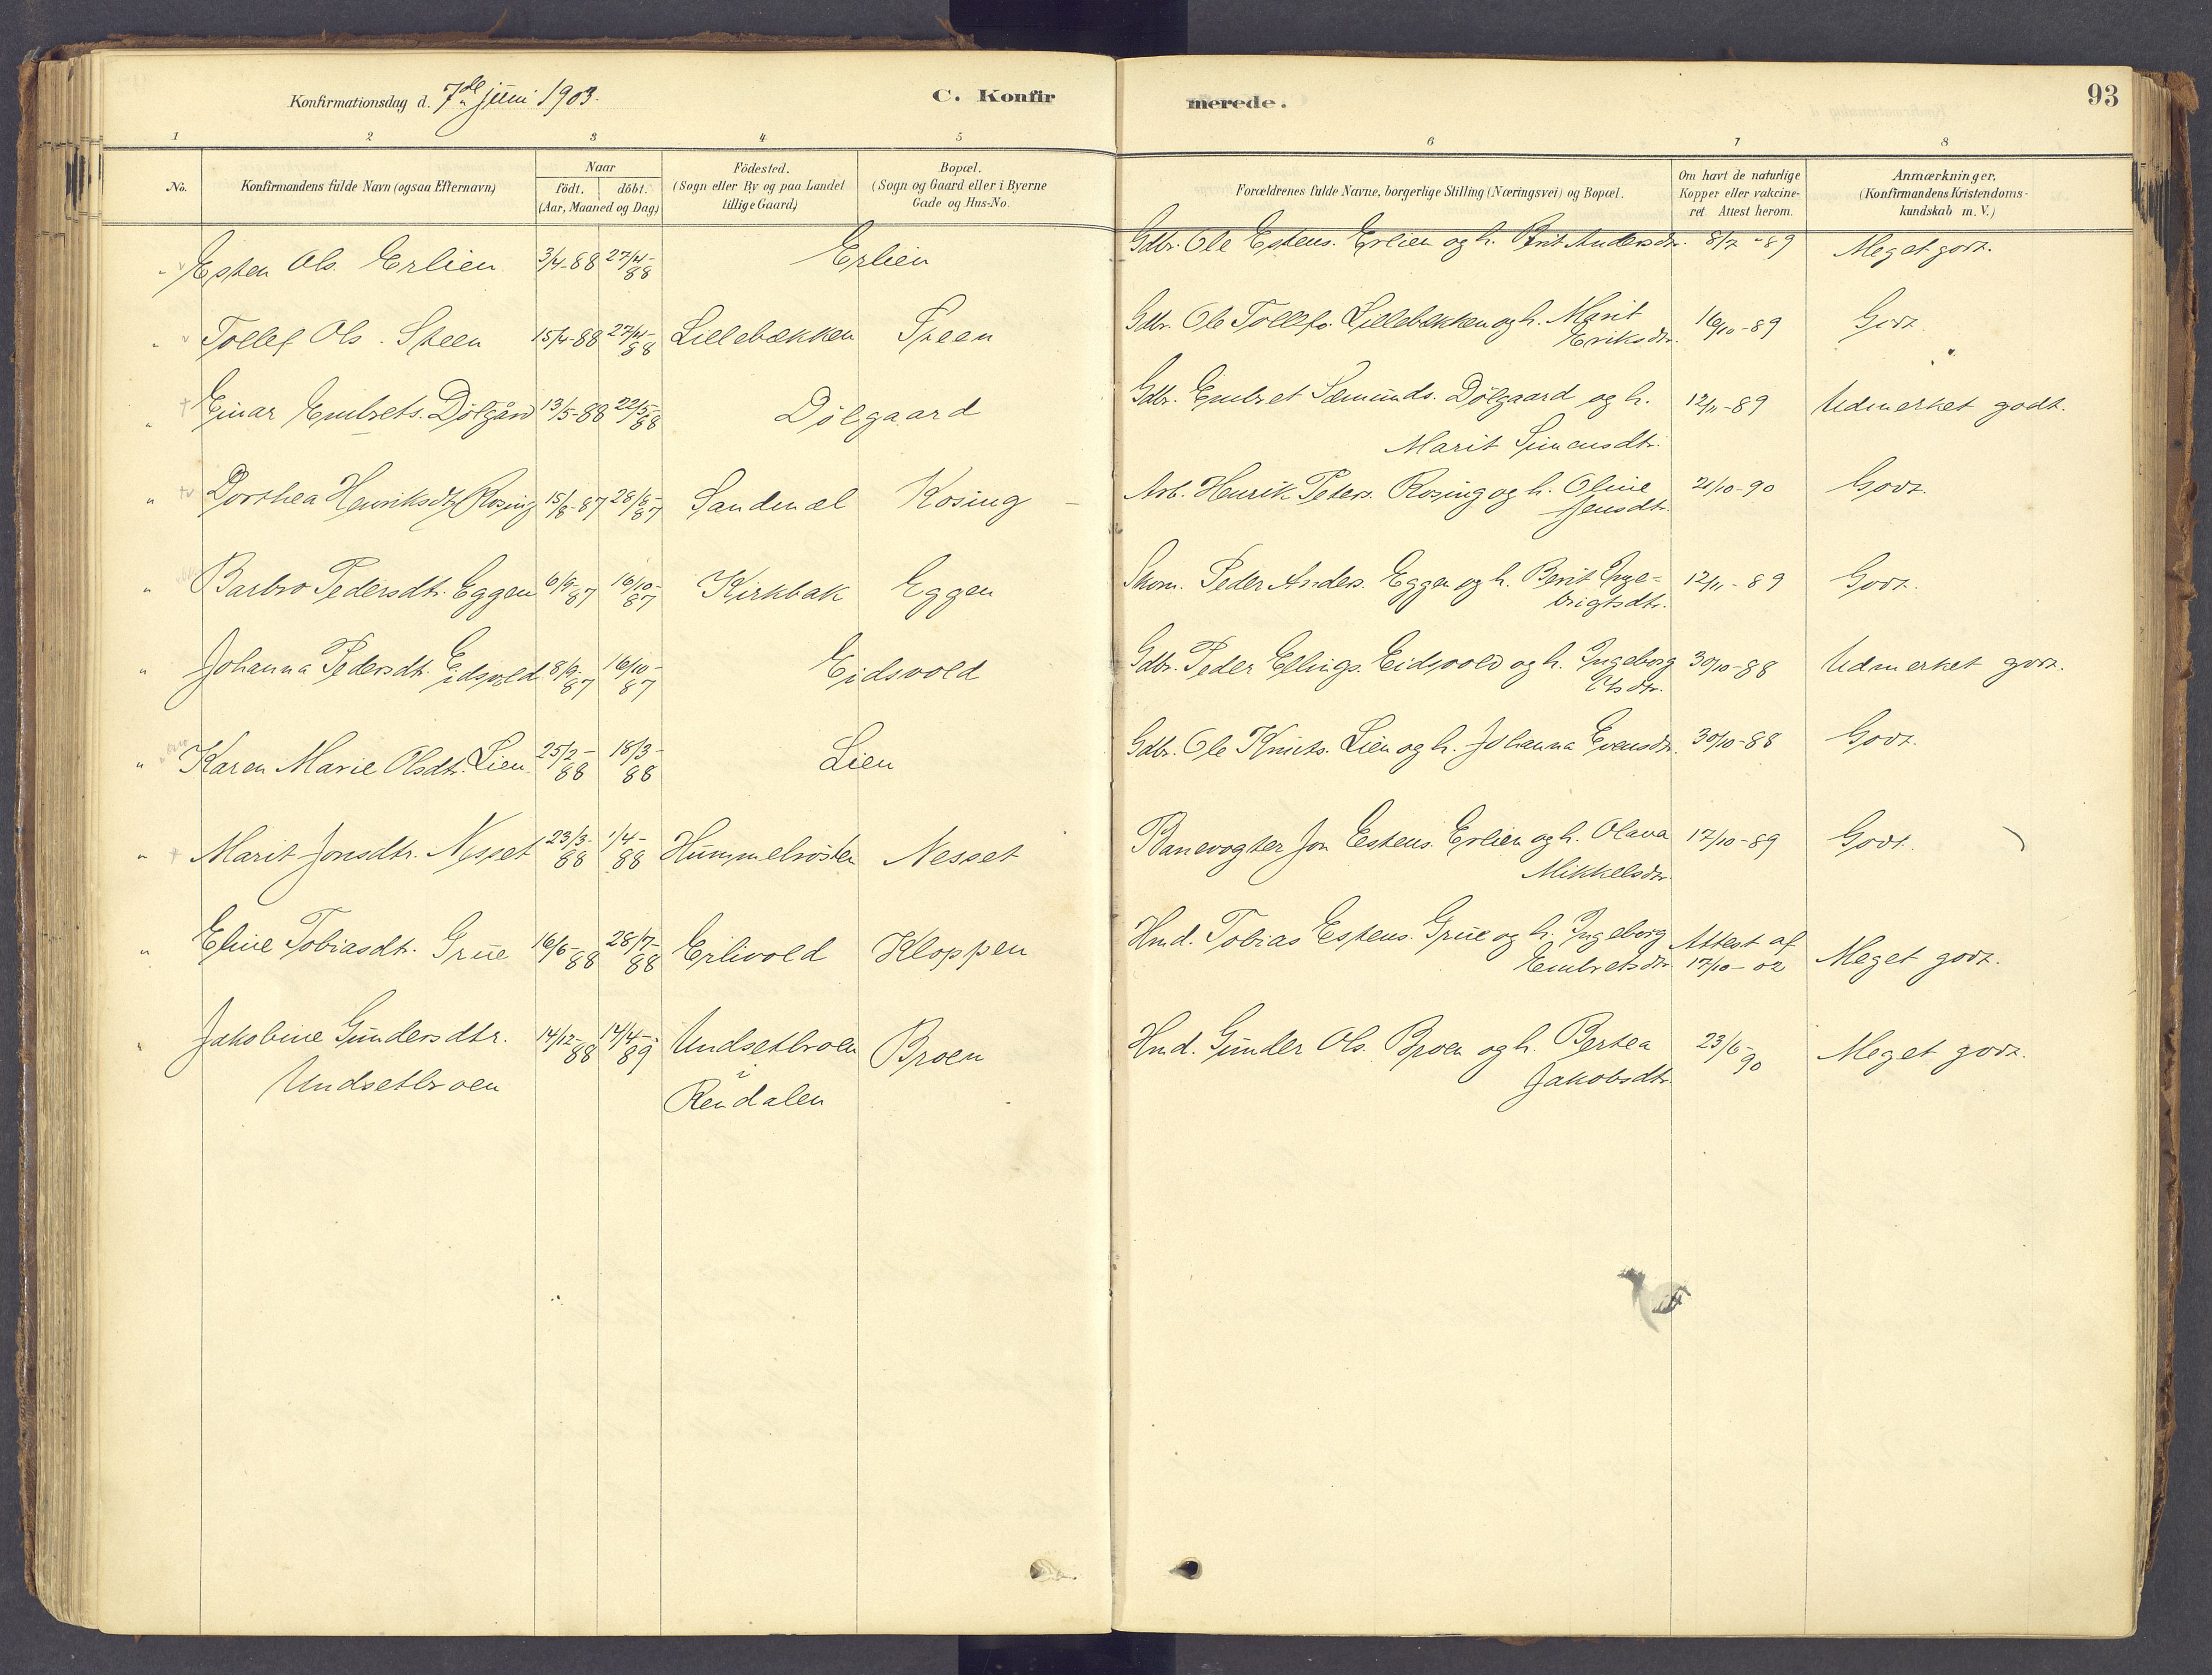 Konfirmationsdag d. 7de juni 1903.
C. Konfirmerede.
93
1 2 3 4 5 6 7 8
No.
Konfirmandens fulde Navn (ogsaa Efternavn)
Naar
födt. döbt.
(Aar, Maaned og Dag)
Födested.
(Sogn eller By og paa Landet
tillige Gaard)
Bopæl.
(Sogn og Gaard eller i Byerne
Gade og Hus-No.
Forældrenes fulde Navne, borgerlige Stilling (Næringsvei) og Bopæl.
Om havt de naturlige
Kopper eller vakcine-
ret. Attest herom.
Anmærkninger.
(Konfirmandens Kristendoms-
kundskab m. V.)
" Esten Ols. Erlien 3/4-88 27/4-88 Erlien Gdbr. Ole Estens. Erlien og h. Brit Andersdtr. 8/7-89 Meget godt.
" Tollef Ols. Steen 15/4-88 27/4-88 Lillebækken Steen Gdbr. Ole Tollefs. Lillebækken og h. Marit
Eriksdtr. 16/10-89 Godt.
" Einar Embrets. Dölgård 13/5-88 22/5-88 Dølgaard Gdbr. Embret Semunds. Dølgaard og h.
Marit Simensdtr. 12/11-89 Udmerket godt.
" Dorthea Henriksdtr. Rosing 15/8-87 28/8-87 Sandmæl Kosing Arb. Henrik Peters. Rosing og h. Oline
Jensdtr. 21/10-90 Godt.
" Barbro Pedersdtr. Eggen 6/9-87 16/10-87 Kirkbak Eggen Skom. Peder Anders. Eggen og h. Berit Inge-
brigtsdtr. 12/11-89 Godt.
" Johanna Pedersdtr. Eidsvold 8/9-87 16/10-87 Eidsvold Gdbr. Peder Ellings. Eidsvold og h. Ingeborg
Olsdtr. 30/10-88 Udmerket godt.
" Karen Marie Olsdtr. Lien 25/2-88 18/3-88 Lien Gdbr. Ole Knuts. Lien og h. Johanna Evensdtr. 30/10-88 Godt.
" Marit Jonsdtr. Nesset 23/3-88 1/4-88 Hummelvosten Nesset Banevogter Jon Estens. Erlien og h. Olava
Mikkelsdtr. 17/10-89 Godt.
" Eline Tobiasdtr. Grue 16/6-88 28/7-88 Erlivold Kloppen Hmd. Tobias Estens. Grue og h. Ingeborg
Embretsdtr. Attest af
17/10-02 Meget godt.
" Jakobine Gundersdtr.
Undsetbroen 14/12-88 14/4-89 Undsetbroen
i
Rendalen Broen Hmd. Gunder Ols. Broen og h. Bertea
Jakobsdtr. 23/6-90 Meget godt.